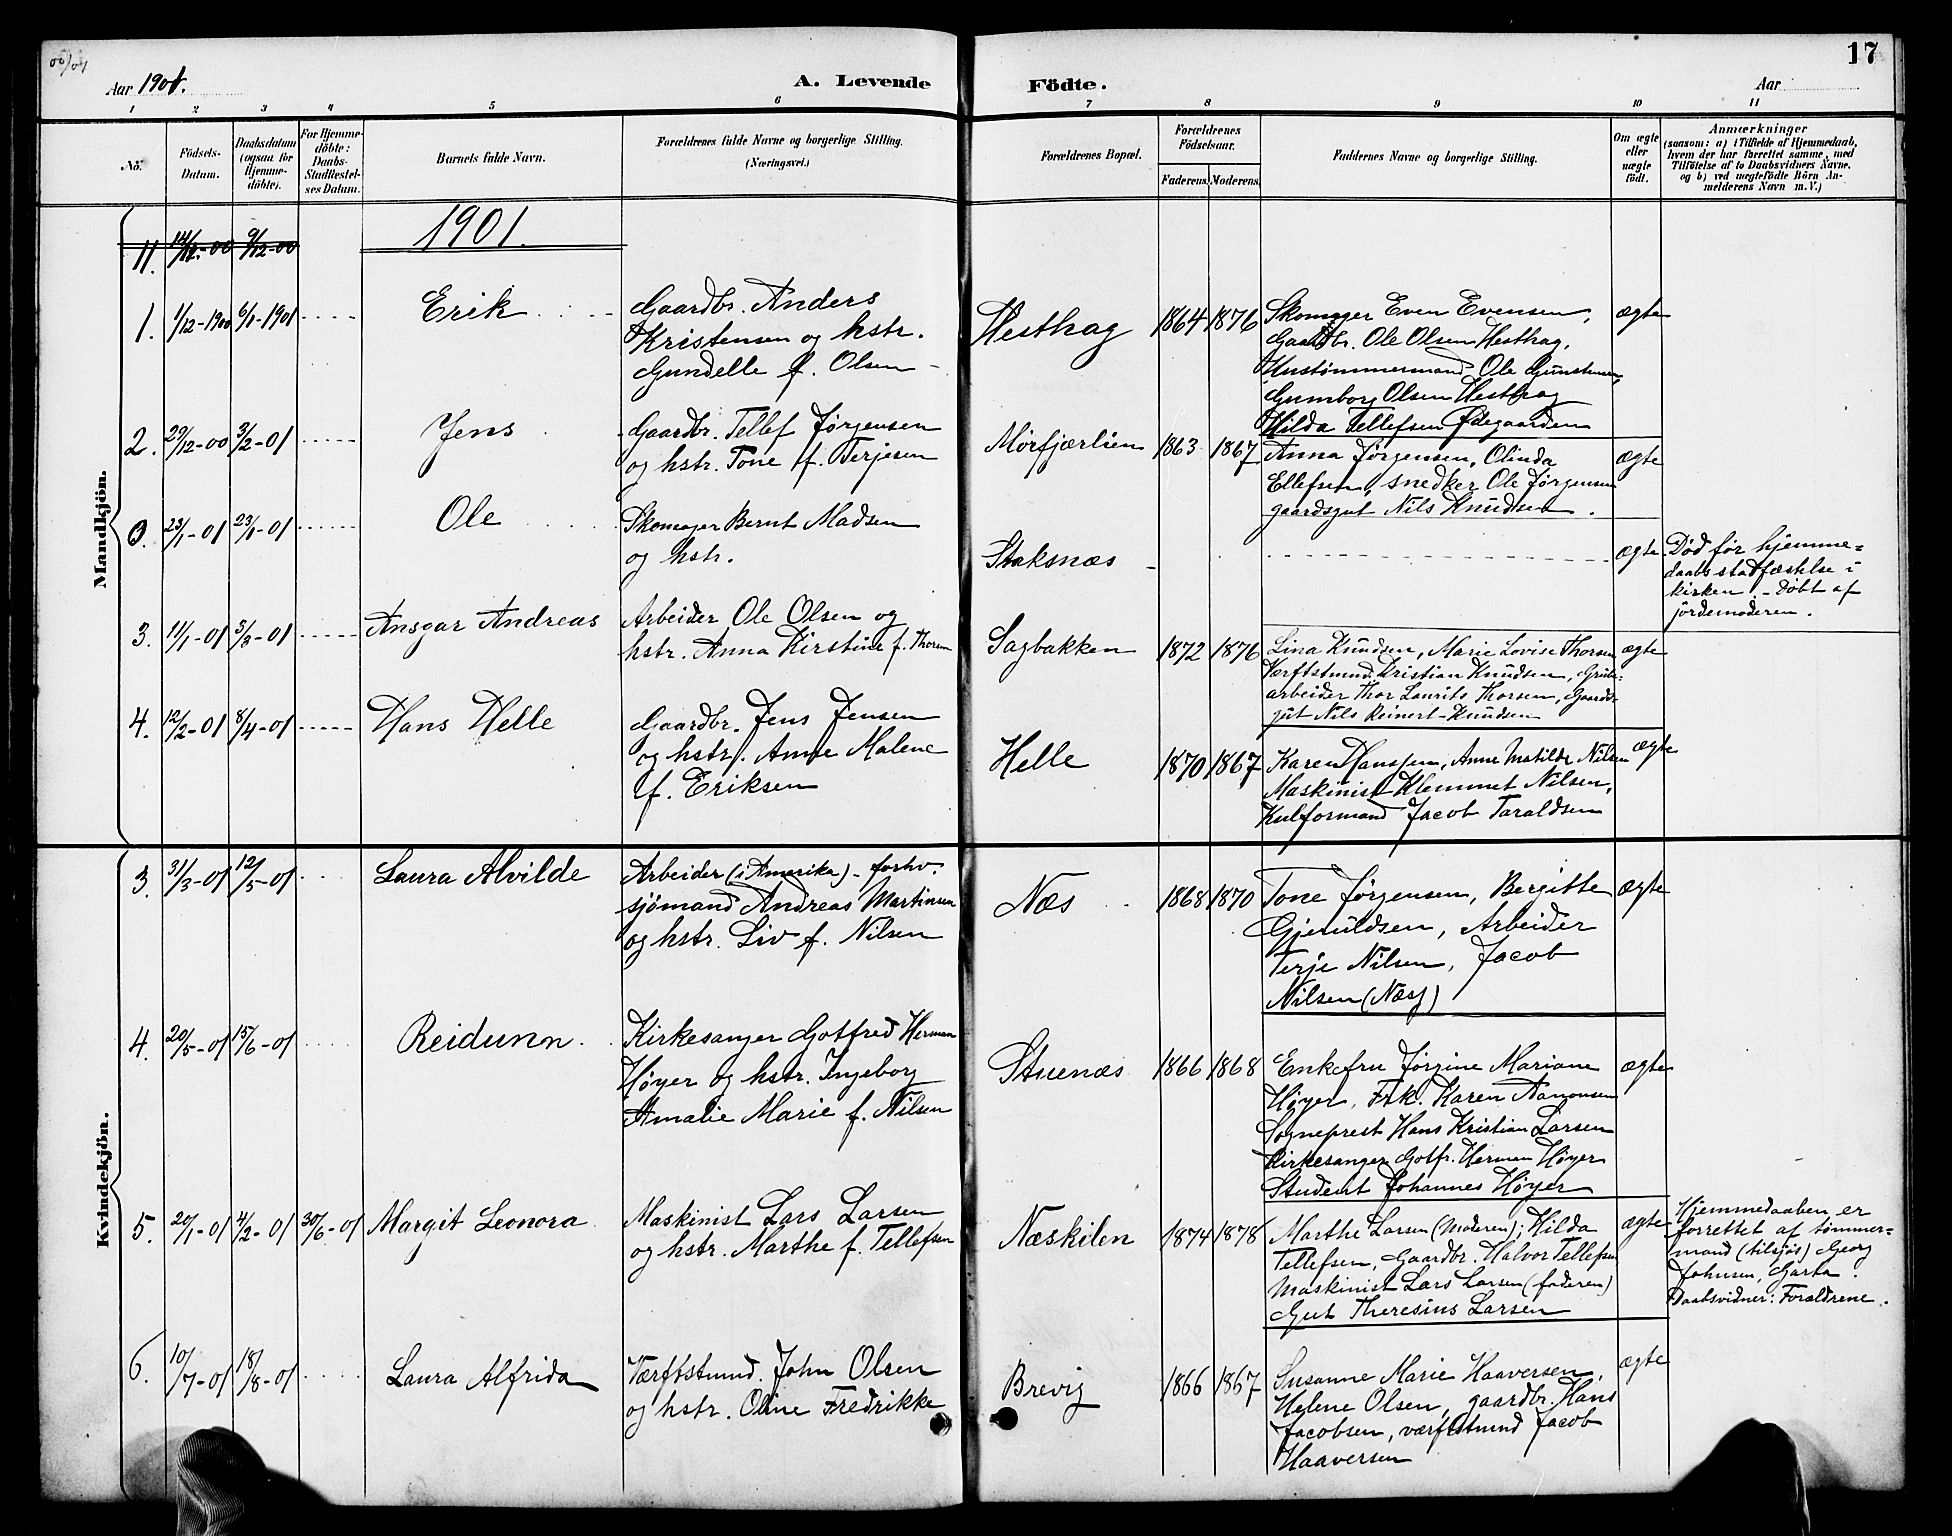 00/01
17
Aar 1901.
A. Levende
Födte.
Aar
1 2 3 4 5 6 7 8 9 10 11
No.
Födsels-
Datum.
Daabsdatum
(ogsaa for
Hjemme-
döbte).
For Hjemme-
döbte:
Daabs-
Stadfæstel-
ses Datum.
Barnets fulde Navn.
Forældrenes fulde Navne og borgerlige Stilling.
(Næringsvei.)
Forældrenes Bopæl.
Forældrenes
Födselsaar.
Faderens. Moderens.
Faddernes Navne og borgerlige Stilling.
Om ægte
eller
uægte
födt.
Anmærkninger
(saasom: a) i Tilfælde af Hjemmedaab,
hvem der har forrettet samme, med
Tilföielse af to Daabsvidners Navne,
og b) ved uægtefödte Börn An-
melderens Navn m. V.)
Mandkjön.
11. 14/12-00 9/12-00
1901.
1. 1/12-1900 6/1-1901
Erik
Gaardbr. Anders
Kristensen og hstr.
Gundelle f. Olsen
Hesthag
1864 1876
Skomager Even Evensen,
Gaardbr. Ole Olsen Hesthag,
Hustømmermand Ole Gunstensen,
Gumborg Olsen Hesthag
Hilda Tellefsen Ødegaarden
ægte
2. 29/12-00 3/2-01
Jens
Gaardbr. Tellef Jørgensen
og hstr. Tone f. Terjesen
Mørfjærlien
1863 1867
Anna Jørgensen, Olinda
Ellefsen, snedker Ole Jørgensen
gaardsgut Nils Knudsen.
ægte
0. 23/1-01 23/1-01
Ole
Skomager Bernt Madsen
og hstr.
Staksnæs
ægte
Død før hjemme-
daabs stadfæstelse i
kirken. - Døbt af
jordemoderen.
3. 11/1-01 3/3-01
Ansgar Andreas
Arbeider Ole Olsen og
hstr. Anna Kirstine f. Thorsen
Sagbakken
1872 1876
Lina Knudsen, Marie Lovise Thorsen
Værftstmd. Kristian Knudsen, Grube-
arbeider Thor Laurits Thorsen, Gaards-
gut Nils Reinert Knudsen
ægte
4. 12/2-01 8/4-01
Hans Helle
Gaardbr. Jens Jensen
og hstr. Anne Malene
f. Eriksen
Helle
1870 1867
Karen Hanssen, Anne Matilde Nilsen
Maskinist Klemmet Nilsen,
Kulformand Jacob Taraldsen
ægte
Kvindekjön.
3. 31/3-01 12/5-01
Laura Alvilde
Arbeider (i Amerika) - forhv.
sjømand Andreas Martinsen
og hstr. Liv f. Nilsen
Næs
1868 1870
Tone Jørgensen, Bergitte
Gjeruldsen, Arbeider
Terje Nilsen, Jacob
Nilsen (Næs)
ægte
4. 20/5-01 15/6-01
Reidunn.
Kirkesanger Gotfred Herman
Høyer og hstr. Ingeborg
Amalie Marie f. Nilsen
Stuenæs
1866 1868
Enkefru Jørgine Mariane
Høyer, Frk. Karen Aanonsen
Sogneprest Hans Kristian Larsen
Kirkesanger Gotfr. Herman Høyer
Student Johannes Høyer
ægte
5. 20/1-01 4/2-01 30/6-01
Margit Leonora
Maskinist Lars Larsen
og hstr. Marthe f. Tellefsen
Næskilen
1874 1878
Marthe Larsen (moderen); Hilda
Tellefsen, Gaardbr. Halvor Tellefsen
Maskinist Lars Larsen (faderen)
Gut Theresius Larsen
ægte
Hjemmedaaben er
forrettet af tømmer-
mand (tilsjøs) Georg
Johnsen, Garta.
Daabsvidner: Forældrene.
6. 10/7-01 18/8-01
Laura Alfrida
Værftstmd. John Olsen
og hstr. Oline Fredrikke
Brevig
1866 1867
Susanne Marie Haaversen,
Helene Olsen, gaardbr. Hans
Jacobsen, værftstmd Jacob
Haaversen
ægte